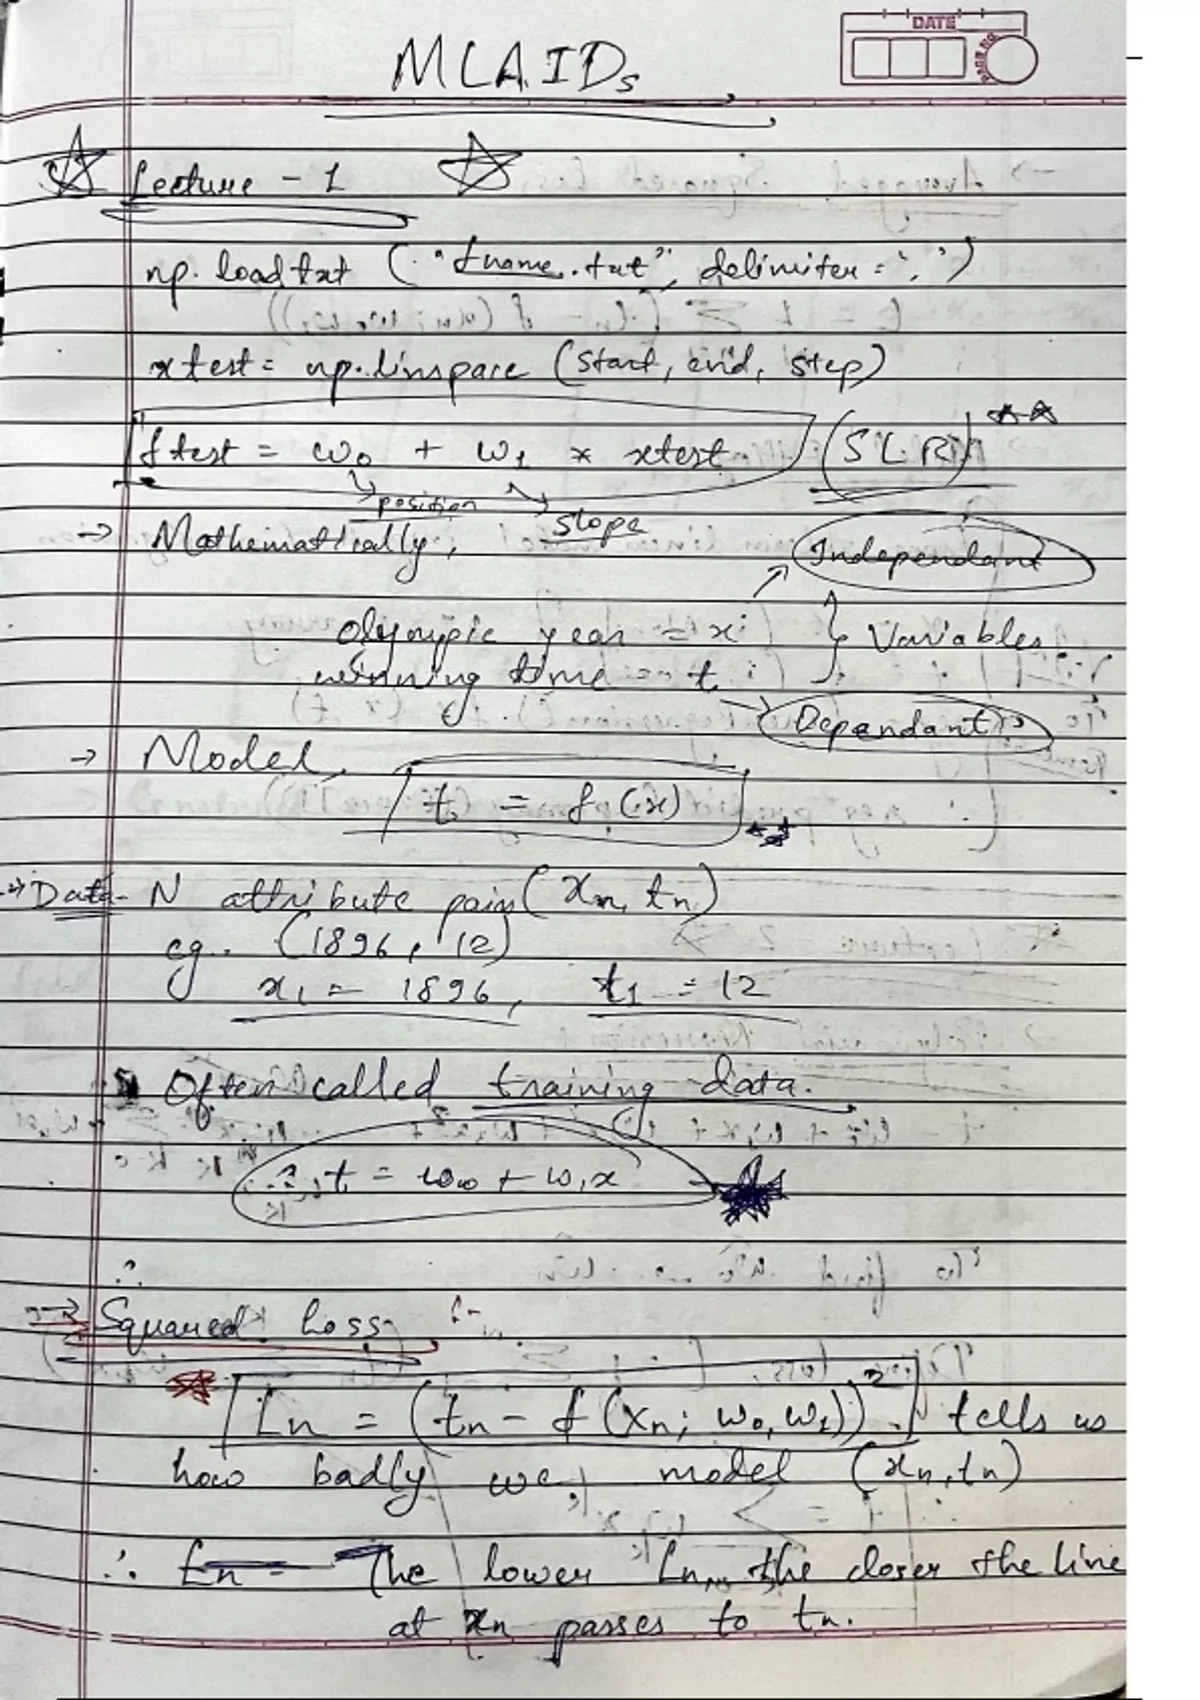 DATE
PAGE NO
MLAIDs
Lecture - 1
np.loadtxt ("fname.txt", delimiter=',')
xtest = np.linspace (start, end, step)
ftest = w₀ + w₁ * xtest (SLR)
position
slope
→ Mathematically,
Independant
Olympic year = xi
Variables
winning time = t
Dependant
→ Model,
t = f(x)
→ Data - N attribute pairs (xn, tn)
eg.. (1896, 12)
x₁ = 1896, t₁ = 12
Often called training data.
∴ t = w₀ + w₁x
∴
→ Squared Loss :-
Ln = (tn - f(xn; w₀, w₁))² tells us
how badly we model (xn, tn)
∴ The lower Ln, the closer the line
at xn passes to tn.